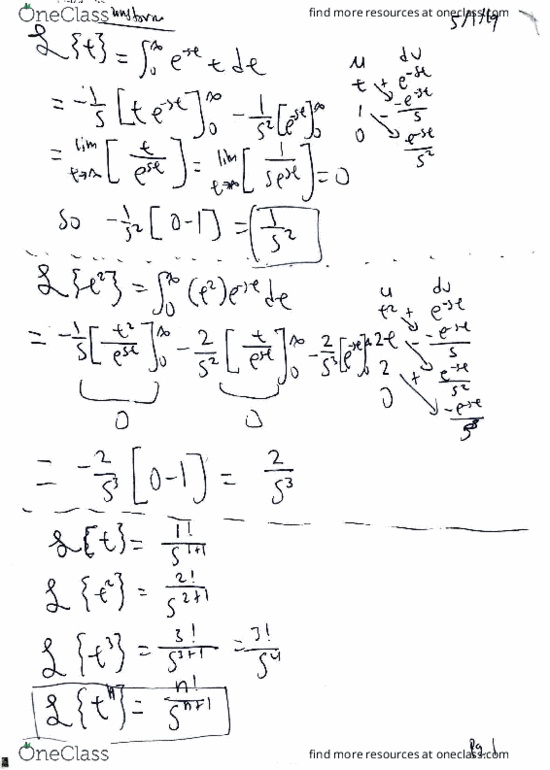 OneClass
find more resources at oneclass.com
5/1/19
ℒ{t} = ∫₀^∞ e^-st t dt
u dv
t + e^-st
1 - -e^-st/s
0 e^-st/s²
= -1/s [t e^-st]₀^∞ - 1/s² [e^-st]₀^∞
= lim t→∞ [t/e^st] = lim t→∞ [1/se^st] = 0
so -1/s² [0-1] = 1/s²
ℒ{t²} = ∫₀^∞ (t²) e^-st dt
u dv
t² + e^-st
2t - -e^-st/s
2 + e^-st/s²
0 -e^-st/s³
= -1/s [t²/e^st]₀^∞ - 2/s² [t/e^st]₀^∞ - 2/s³ [e^-st]
0 0
= -2/s³ [0-1] = 2/s³
ℒ{t} = 1!/s^1+1
ℒ{t²} = 2!/s^2+1
ℒ{t³} = 3!/s^3+1 = 3!/s⁴
ℒ{t^n} = n!/s^n+1
Pg. 1
OneClass
find more resources at oneclass.com